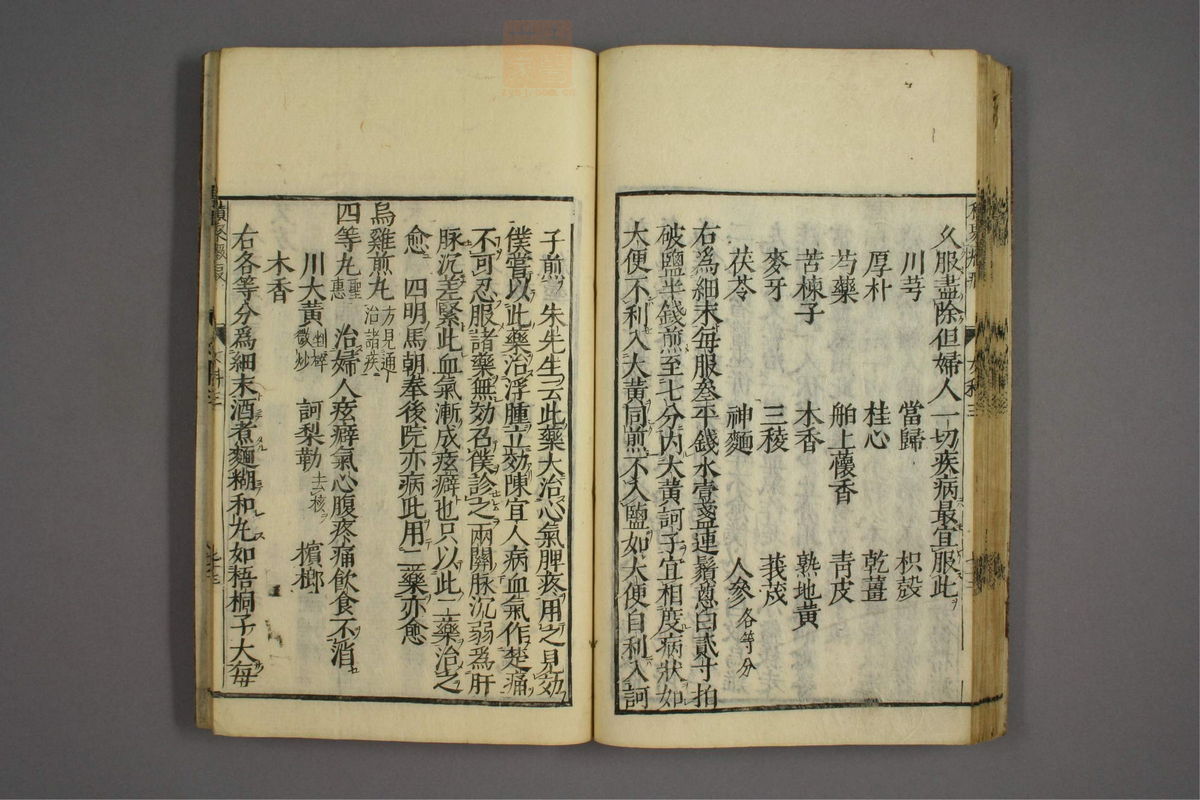 久服盡除但婦人一切疾病最宜服此
川芎 當歸 枳殼
厚朴 桂心 乾薑
芍藥 舶上蘹香 青皮
苦楝子 木香 熟地黃
麥牙 三稜 莪茂
茯苓 神麯 人參各等分
右爲細末每服叁平錢水壹盞連鬚蔥白貳寸拍
破鹽半錢煎至七分內大黃訶子宜相度病狀如
大便不利入大黃同煎不入鹽如大便自利入訶
子煎 朱先生云此藥大治心氣脾疼用之見効
僕嘗以此藥治浮腫立効陳宜人病血氣作楚痛
不可忍服諸藥無効召僕診之兩關脉沉弱爲肝
脉沉差緊此血氣漸成痃癖也只以此二藥治之
愈 四明馬朝奉後院亦病此用二藥亦愈
烏雞煎丸方見通治諸疾
四等丸聖惠 治婦人痃癖氣心腹疼痛飲食不消
川大黃剉碎微炒 訶梨勒去核 檳榔
木香
右各等分爲細末酒煮麵糊和丸如梧桐子大每